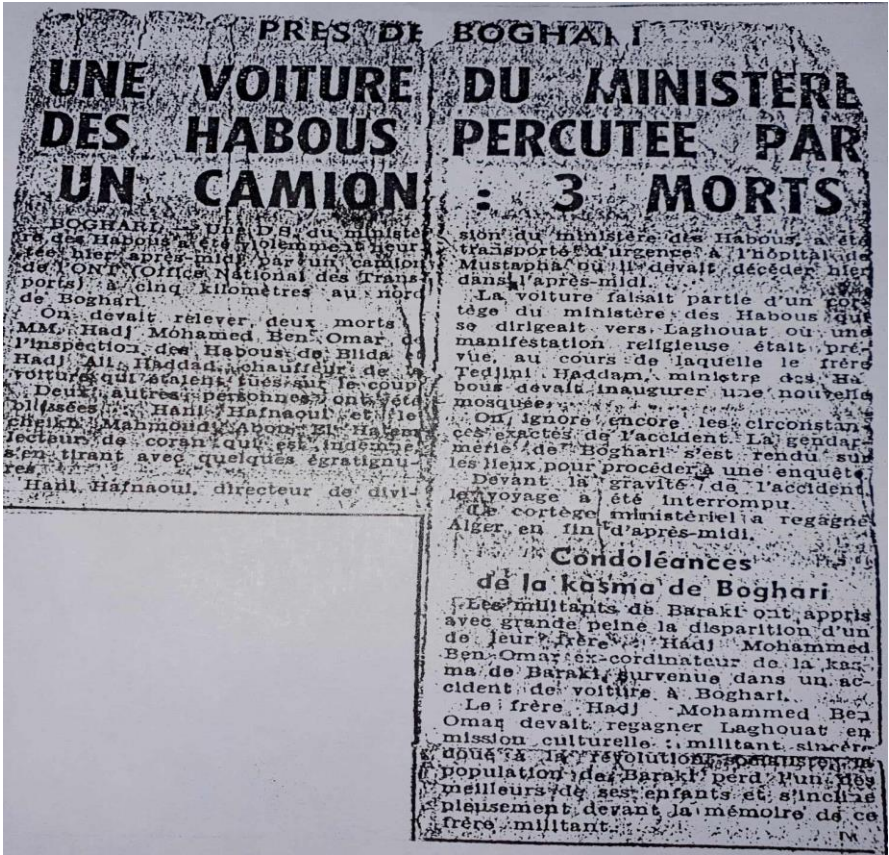 PRES DE BOGHARI
UNE VOITURE DU MINISTERE
DES HABOUS PERCUTEE PAR
UN CAMION : 3 MORTS
BOGHARI. — Une D.S. du ministè-
re des Habous a été violemment heur-
tée hier après-midi par un camion
de l'ONT (Office National des Trans-
ports) à cinq kilomètres au nord
de Boghari.
On devait relever deux morts :
MM. Hadj Mohamed Ben Omar de
l'inspection des Habous de Blida et
Hadj Ali Haddad, chauffeur de la
voiture qui étaient tués sur le coup.
Deux autres personnes ont été
blissées : Hani Hafnaoui et le
cheikh Mahmoudy Abou El Hatem
lecteur de coran qui est indemne,
s'en tirant avec quelques égratignu-
res.
Hani Hafnaoui, directeur de divi-
sion du ministère des Habous, a été
transporté d'urgence à l'hôpital de
Mustapha où il devait décéder hier
dans l'après-midi.
La voiture faisait partie d'un cor-
tège du ministère des Habous qui
se dirigeait vers Laghouat où une
manifestation religieuse était pré-
vue, au cours de laquelle le frère
Tedjini Haddam, ministre des Ha-
bous devait inaugurer une nouvelle
mosquée.
On ignore encore les circonstan-
ces exactes de l'accident. La gendar-
merie de Boghari s'est rendu sur
les lieux pour procéder à une enquête.
Devant la gravité de l'accident
le voyage a été interrompu.
Le cortège ministériel a regagné
Alger en fin d'après-midi.
Condoléances
de la kasma de Boghari
Les militants de Baraki ont appris
avec grande peine la disparition d'un
de leur frère : Hadj Mohammed
Ben-Omar ex-cordinateur de la kas-
ma de Baraki, survenue dans un ac-
cident de voiture à Boghari.
Le frère Hadj Mohammed Ben
Omar devait regagner Laghouat en
mission culturelle : militant sincère
doué à la révolution socialiste, la
population de Baraki perd l'un des
meilleurs de ses enfants et s'incline
pieusement devant la mémoire de ce
frère militant.